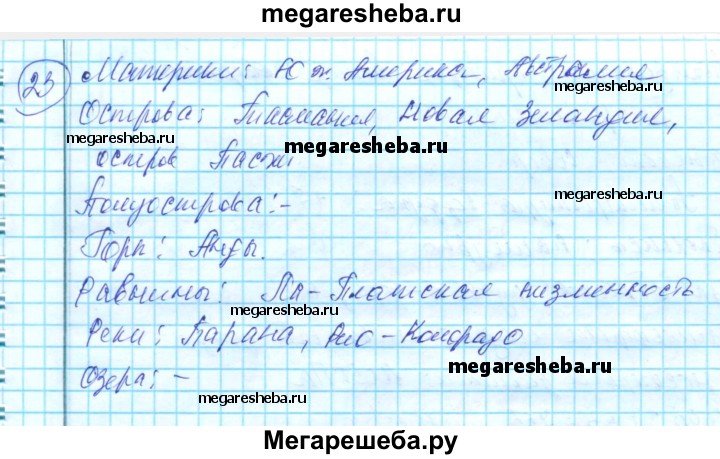 megaresheba.ru
23 Материки: Юж. Америка, Австралия
megaresheba.ru
Острова: Тасмания, Новая Зеландия,
megaresheba.ru
megaresheba.ru
остров Пасхи
megaresheba.ru
Полуострова: -
Горы: Анды.
Равнины: Ла-Платская низменность
megaresheba.ru
Реки: Парана, Рио-Колорадо
megaresheba.ru
Озера: -
megaresheba.ru
Мегарешеба.ру